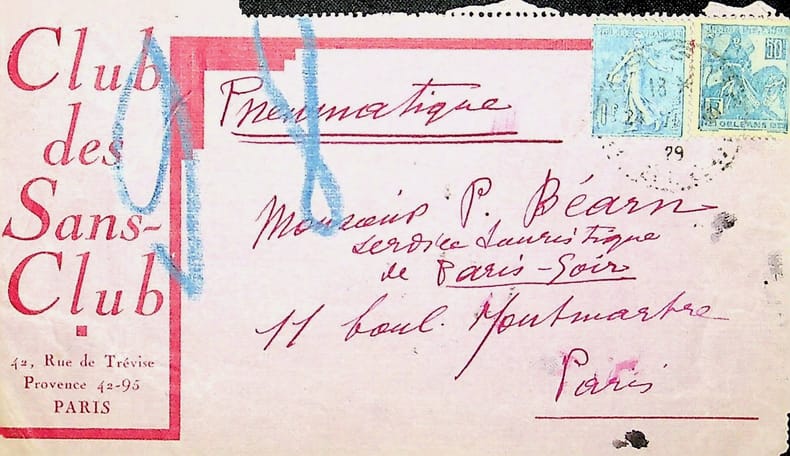 Club
des
Sans-
Club
42, Rue de Trévise
Provence 42-95
PARIS
98
Pneumatique
Monsieur P. Béarn
service touristique
de Paris-Soir
11 boul. Montmartre
Paris
29